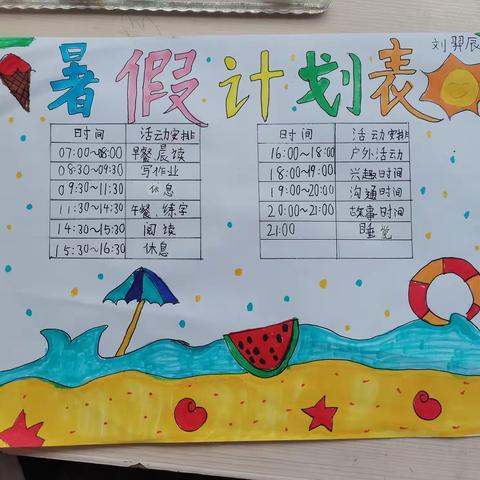 暑假计划表
刘羿辰
时间 活动安排
07:00~08:00 早餐、晨读
08:30~09:30 写作业
09:30~11:30 休息
11:30~14:30 午餐、练字
14:30~15:30 阅读
15:30~16:30 休息
时间 活动安排
16:00~18:00 户外活动
18:00~19:00 兴趣时间
19:00~20:00 沟通时间
20:00~21:00 故事时间
21:00 睡觉